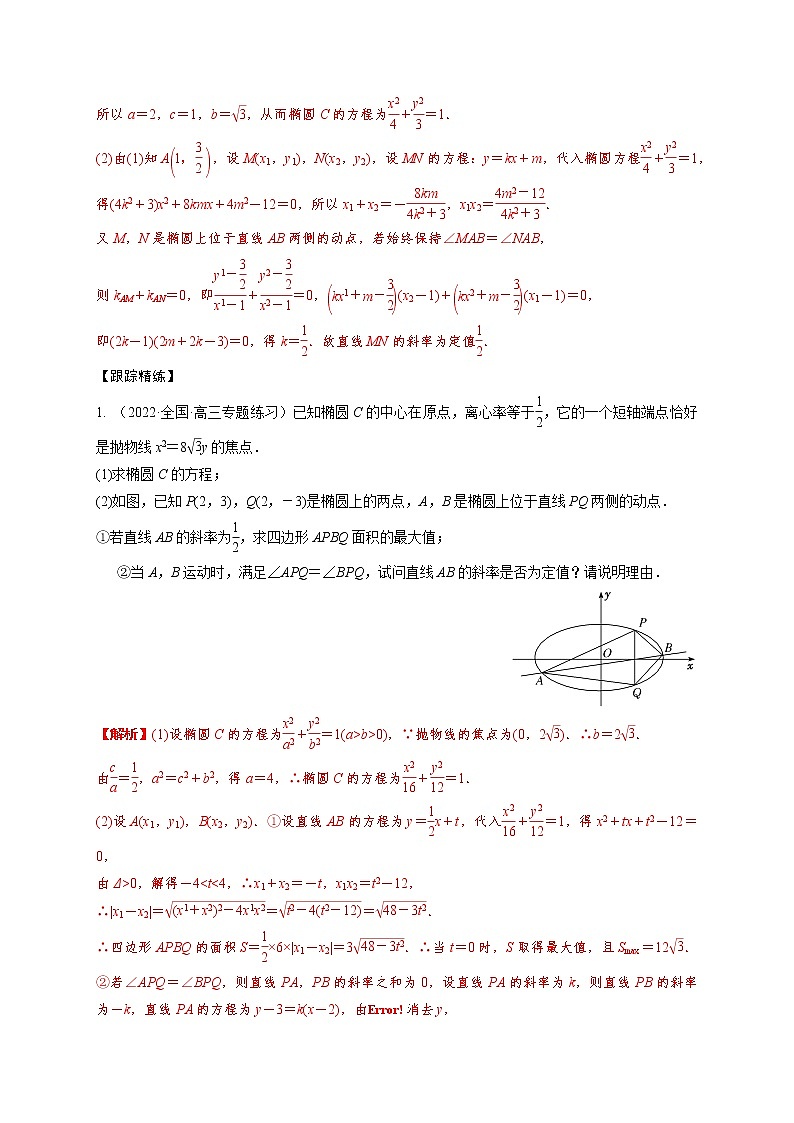 所以 a=2，c=1，b=√3，从而椭圆 C 的方程为x²/4+y²/3=1．
(2)由(1)知 A(1，3/2)，设 M(x₁，y₁)，N(x₂，y₂)，设 MN 的方程：y=kx+m，代入椭圆方程x²/4+y²/3=1，
得(4k²+3)x²+8kmx+4m²-12=0，所以 x₁+x₂=-8km/(4k²+3)，x₁x₂=(4m²-12)/(4k²+3)．
又 M，N 是椭圆上位于直线 AB 两侧的动点，若始终保持∠MAB=∠NAB，
则 kAM+kAN=0，即(y1-3/2)/(x1-1)+(y2-3/2)/(x2-1)=0，(kx1+m-3/2)(x₂-1)+(kx2+m-3/2)(x₁-1)=0，
即(2k-1)(2m+2k-3)=0，得 k=1/2．故直线 MN 的斜率为定值1/2．
【跟踪精练】
1. （2022·全国·高三专题练习）已知椭圆 C 的中心在原点，离心率等于1/2，它的一个短轴端点恰好
是抛物线 x²=8√3y 的焦点．
(1)求椭圆 C 的方程；
(2)如图，已知 P(2，3)，Q(2，-3)是椭圆上的两点，A，B 是椭圆上位于直线 PQ 两侧的动点．
①若直线 AB 的斜率为1/2，求四边形 APBQ 面积的最大值；
②当 A，B 运动时，满足∠APQ=∠BPQ，试问直线 AB 的斜率是否为定值？请说明理由．
y
P
O
B
x
A
Q
【解析】(1)设椭圆 C 的方程为x²/a²+y²/b²=1(a>b>0)，∵抛物线的焦点为(0，2√3)．∴b=2√3．
由c/a=1/2，a²=c²+b²，得 a=4，∴椭圆 C 的方程为x²/16+y²/12=1．
(2)设 A(x₁，y₁)，B(x₂，y₂)．①设直线 AB 的方程为 y=1/2x+t，代入x²/16+y²/12=1，得 x²+tx+t²-12=
0，
由 Δ>0，解得-4<t<4，∴x₁+x₂=-t，x₁x₂=t²-12，
∴|x₁-x₂|=√((x1+x2)2-4x1x2)=√(t2-4(t2-12))=√(48-3t2)．
∴四边形 APBQ 的面积 S=1/2×6×|x₁-x₂|=3√(48-3t2)．∴当 t=0 时，S 取得最大值，且 Smax=12√3．
②若∠APQ=∠BPQ，则直线 PA，PB 的斜率之和为 0，设直线 PA 的斜率为 k，则直线 PB 的斜率
为-k，直线 PA 的方程为 y-3=k(x-2)，由Error! 消去 y，